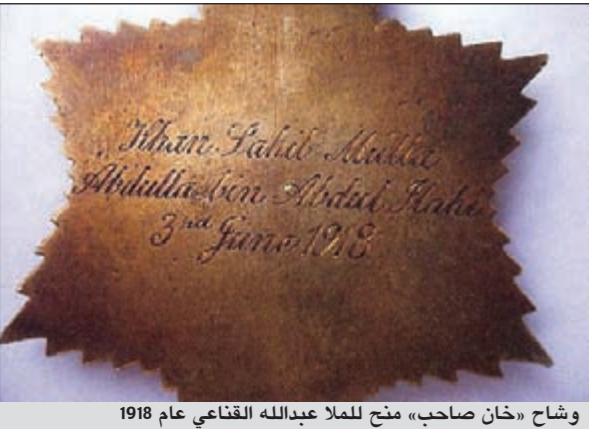 Khan Sahib Mulla
Abdulla bin Abdul Ilahi
3rd June 1918
وشاح «خان صاحب» منح للملا عبدالله القناعي عام 1918